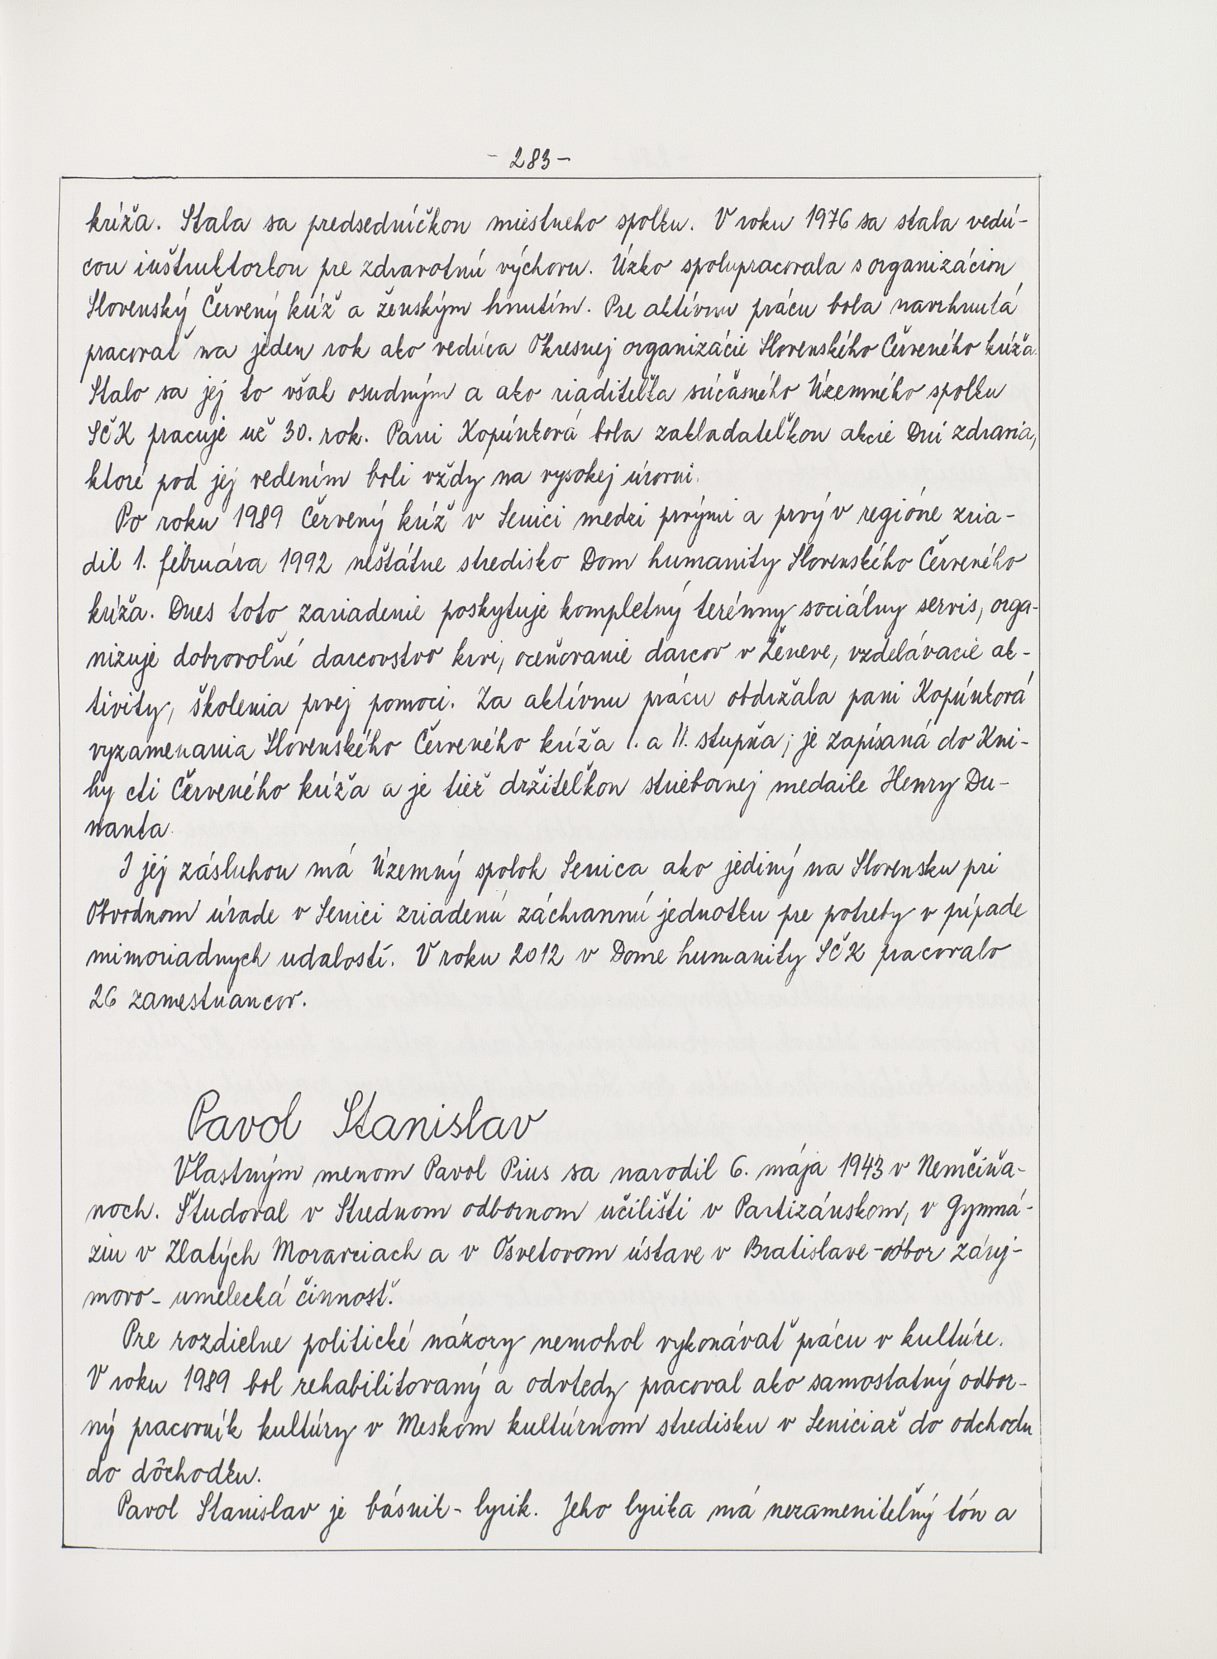 - 283 -
kríža. Stala sa predsedníčkou miestneho spolku. V roku 1976 sa stala vedú-
cou inštruktorkou pre zdravotnú výchovu. Úzko spolupracovala s organizáciou
Slovenský Červený kríž a ženským hnutím. Pre aktívnu prácu bola navrhnutá
pracovať na jeden rok ako vedúca Okresnej organizácie Slovenského Červeného kríža.
Stalo sa jej to však osudným a ako riaditeľka súčasného Územného spolku
SČK pracuje už 30. rok. Pani Kopúnková bola zakladateľkou akcie Dni zdravia,
ktoré pod jej vedením boli vždy na vysokej úrovni.
Po roku 1989 Červený kríž v Senici medzi prvými a prvý v regióne zria-
dil 1. februára 1992 neštátne stredisko Dom humanity Slovenského Červeného
kríža. Dnes toto zariadenie poskytuje kompletný terénny sociálny servis, orga-
nizuje dobrovoľné darcovstvo krvi, oceňovanie darcov v Ženeve, vzdelávacie ak-
tivity, školenia prvej pomoci. Za aktívnu prácu obdržala pani Kopúnková
vyznamenania Slovenského Červeného kríža I. a II. stupňa, je zapísaná do Kni-
hy cti Červeného kríža a je tiež držiteľkou striebornej medaile Henry Du-
nanta.
I jej zásluhou má Územný spolok Senica ako jediný na Slovensku pri
Obvodnom úrade v Senici zriadenú záchrannú jednotku pre potreby v prípade
mimoriadnych udalostí. V roku 2012 v Dome humanity SČK pracovalo
26 zamestnancov.
Pavol Stanislav
Vlastným menom Pavol Pius sa narodil 6. mája 1943 v Nemčiňa-
noch. Študoval v Strednom odbornom učilišti v Partizánskom, v Gymná-
ziu v Zlatých Moravciach a v Osvetovom ústave v Bratislave - odbor záuj-
movo - umelecká činnosť.
Pre rozdielne politické názory nemohol vykonávať prácu v kultúre.
V roku 1989 bol rehabilitovaný a odvtedy pracoval ako samostatný odbor-
ný pracovník kultúry v Meskom kultúrnom stredisku v Senici až do odchodu
do dôchodku.
Pavol Stanislav je básnik - lyrik. Jeho lyrika má nezameniteľný tón a